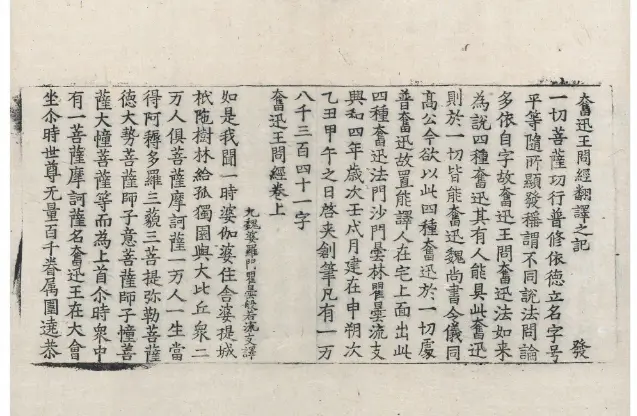 奮迅王問經翻譯之記 發
一切菩薩功行普修依德立名字号
平等隨所顯發稱謂不同說法問論
多依自字故奮迅王問奮迅法如来
為說四種奮迅其有人能具此奮迅
則於一切皆能奮迅魏尚書令儀同
髙公今欲以此四種奮迅於一切處
普奮迅故置能譯人在宅上面出此
四種奮迅法門沙門曇林瞿曇流支
興和四年歲次壬戌月建在申朔次
乙丑甲午之日啓夾創筆凡有一万
八千三百四十一字
奮迅王問經卷上
元魏婆羅門瞿曇般若流支譯
如是我聞一時婆伽婆住舍婆提城
祇陁樹林給孤獨園與大比丘衆二
万人俱菩薩摩訶薩一万人一生當
得阿耨多羅三藐三菩提弥勒菩薩
德大勢菩薩師子意菩薩師子幢菩
薩大幢菩薩等而為上首尒時衆中
有一菩薩摩訶薩名奮迅王在大會
坐尒時世尊无量百千眷属圍遶恭